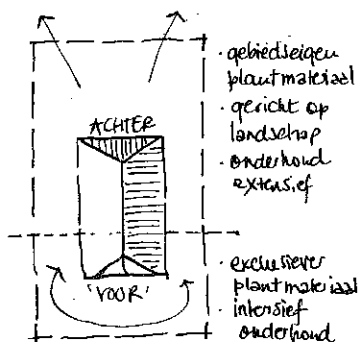 · gebiedseigen
plantmateriaal
· gericht op
landschap
· onderhoud
extensief
ACHTER
'VOOR'
· exclusiever
plantmateriaal
· intensief
onderhoud